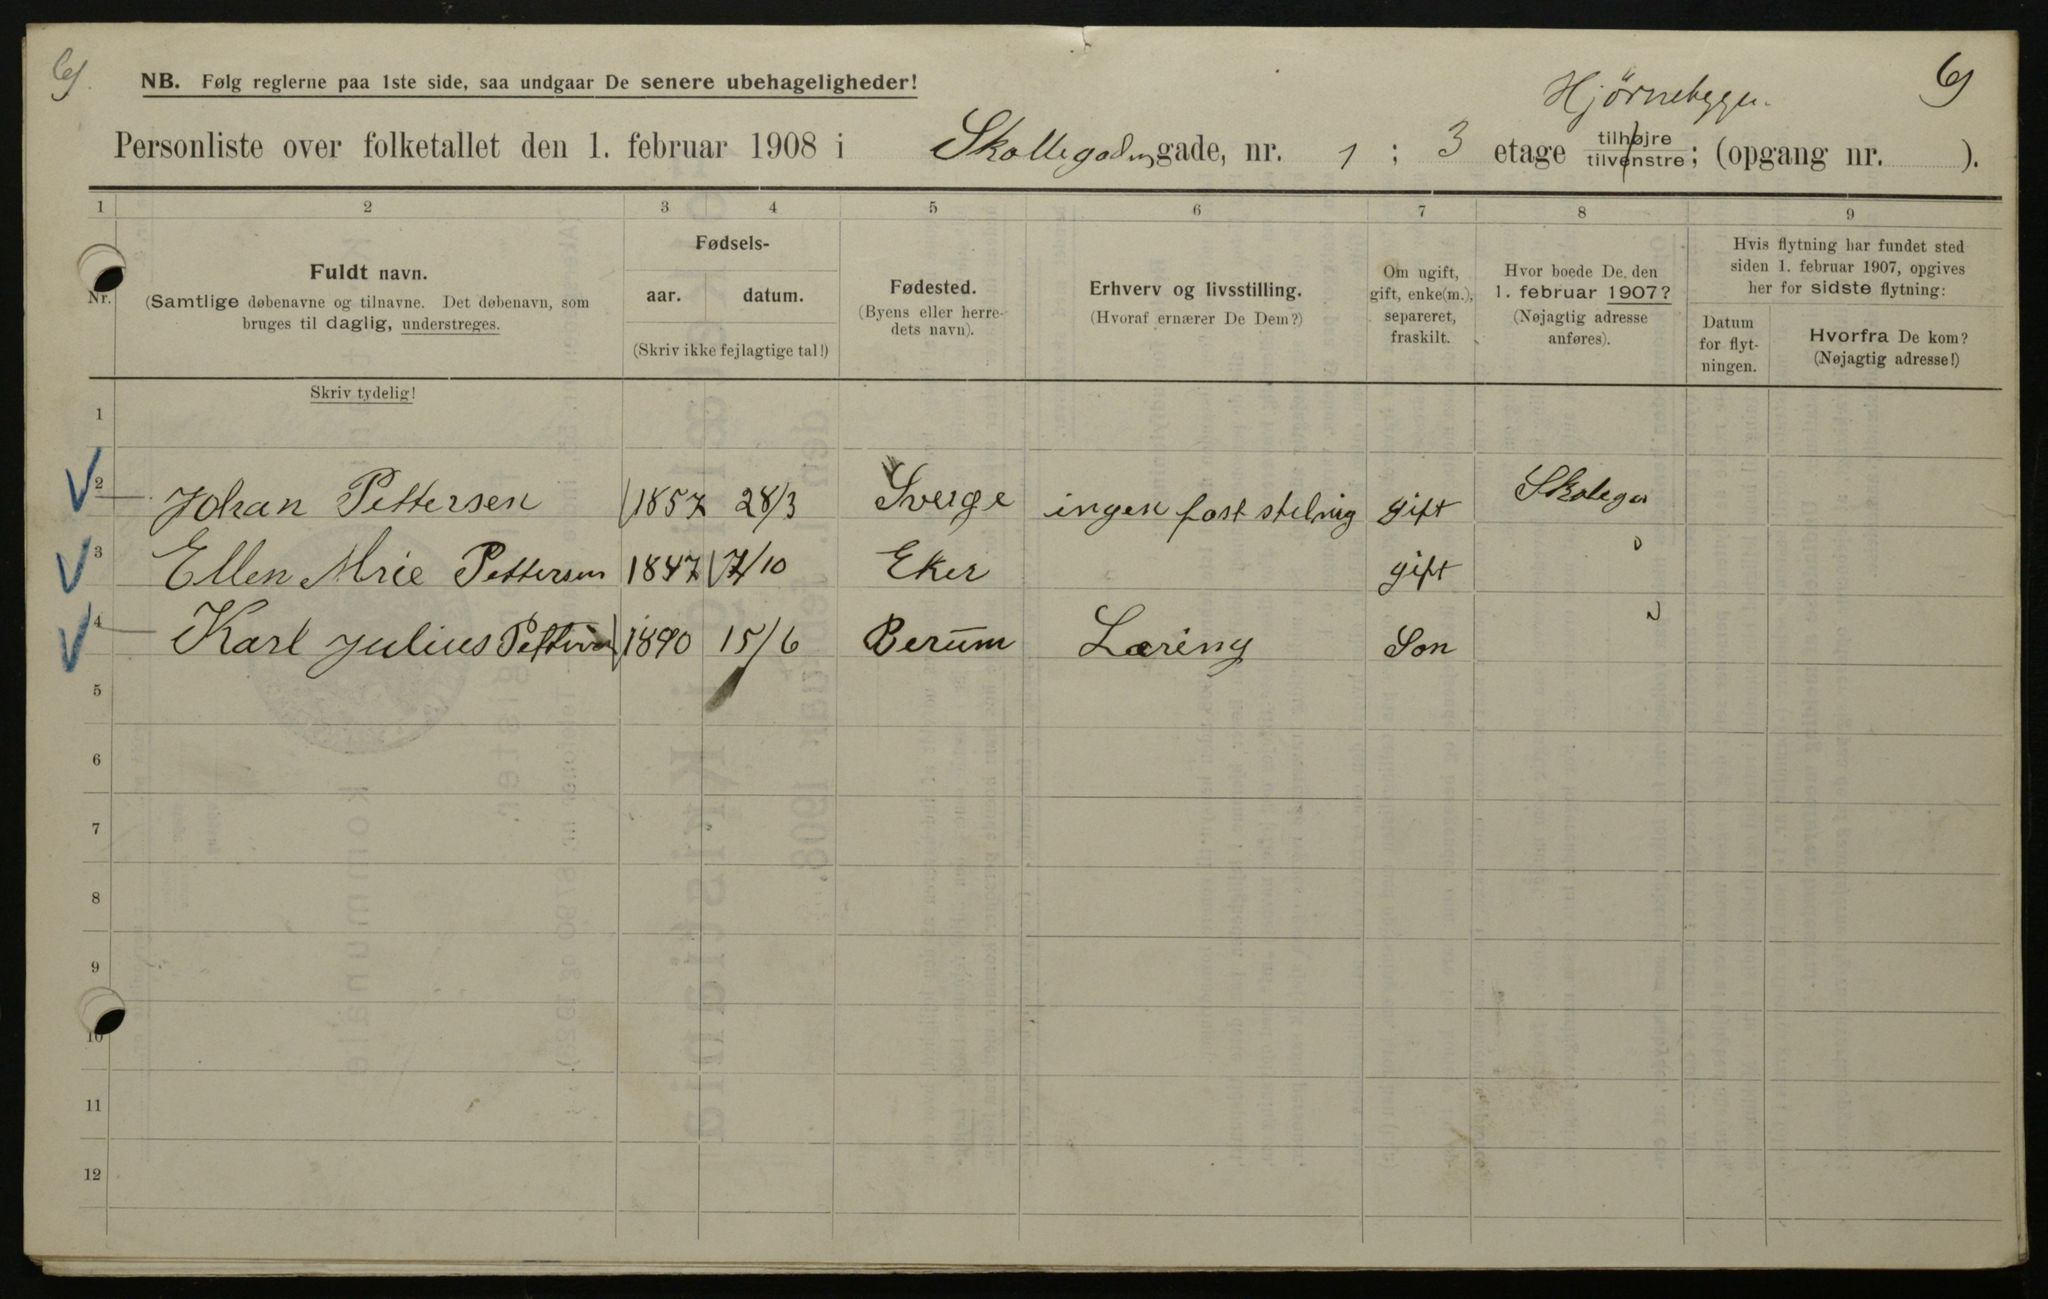 6. NB. Følg reglerne paa 1ste side, saa undgaar De senere ubehageligheder! Hjørnebygn. 6
Personliste over folketallet den 1. februar 1908 i Skollegaden gade, nr. 1 ; 3 etage tilhøjre tilvenstre; (opgang nr. ).
1 2 3 4 5 6 7 8 9
Nr.
Fuldt navn.
(Samtlige døbenavne og tilnavne. Det døbenavn, som
bruges til daglig, understreges.
Fødsels-
aar. datum.
(Skriv ikke fejlagtige tal!)
Fødested.
(Byens eller herre-
dets navn).
Erhverv og livsstilling.
(Hvoraf ernærer De Dem?)
Om ugift,
gift, enke(m.),
separeret,
fraskilt.
Hvor boede De den
1. februar 1907?
(Nøjagtig adresse
anføres).
Hvis flytning har fundet sted
siden 1. februar 1907, opgives
her for sidste flytning:
Datum
for flyt-
ningen.
Hvorfra De kom?
(Nøjagtig adresse!)
Skriv tydelig!
1
2 Johan Pettersen 1857 28/3 Sverge ingen fast stelnig gift Skolega
3 Ellen Mrie Pettersen 1847 7/10 Eker gift "
4 Karl Julius 1890 15/6 Berum Læring Son "
5
6
7
8
9
10
11
12